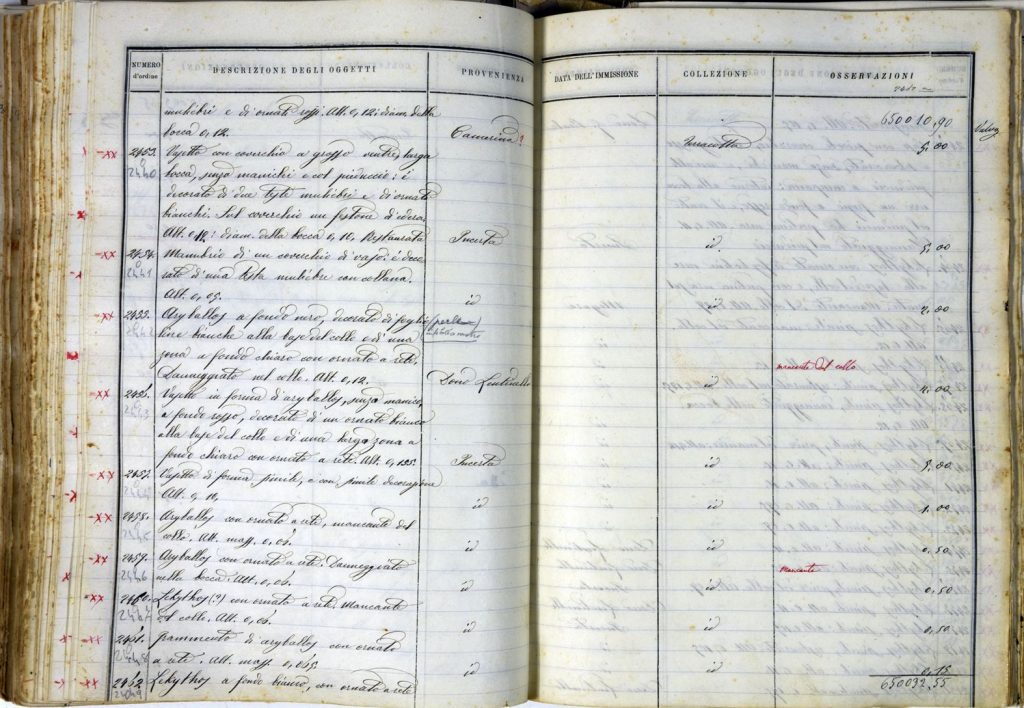 NUMERO d'ordine DESCRIZIONE DEGLI OGGETTI PROVENIENZA DATA DELL'IMMISSIONE COLLEZIONE OSSERVAZIONI
muliebri e di ornati rossi. Alt. 0,12: diam. della
bocca 0,12. Camarina? Terracotta 650010,90
2453. Vasetto con coverchio a grosso ventre, larga 5,00
2440 bocca, senza manichi e col pieduccio: è
decorato di due teste muliebri e di ornati
bianchi. Sul coverchio un festone d'edera.
Alt. 0,12: diam. della bocca 0,10. Restaurata Incerta id. 5,00
2454. Manubrio di un coverchio di vaso: è deco
2441 rato d'una testa muliebre con collana.
Alt. 0,05. id id 2,00
2455. Aryballos a fondo nero, decorato di foglio
line bianche alla base del collo e di una
zona a fondo chiaro con ornato a rete.
Danneggiato nel collo. Alt. 0,12. Dono id mancante del collo 4,00
2456. Vasetto in forma d'aryballos, senza manico,
2443 a fondo rosso, decorato di un ornato bianco
alla base del collo e di una larga zona a
fondo chiaro con ornato a rete. Alt. Incerta id 5,00
2457. Vasetto di forma simile, e con simile decorazione
Alt. 0,10. id id 1,00
2458. Aryballos con ornato a rete, mancante del
collo. Alt. mass. id id 0,50
2459. Aryballos con ornato a rete. Danneggiato mancante
2446 nella bocca. Alt. id id 0,50
2460. Lekythos (?) con ornato a rete. Mancante
2447 del collo. Alt. id id 0,50
2461. Frammento di aryballos con ornato
2448 a rete. Alt. mass. id id 0,15
2462 Lekythos a fondo bianco, con ornato a rete 650032,55
2449